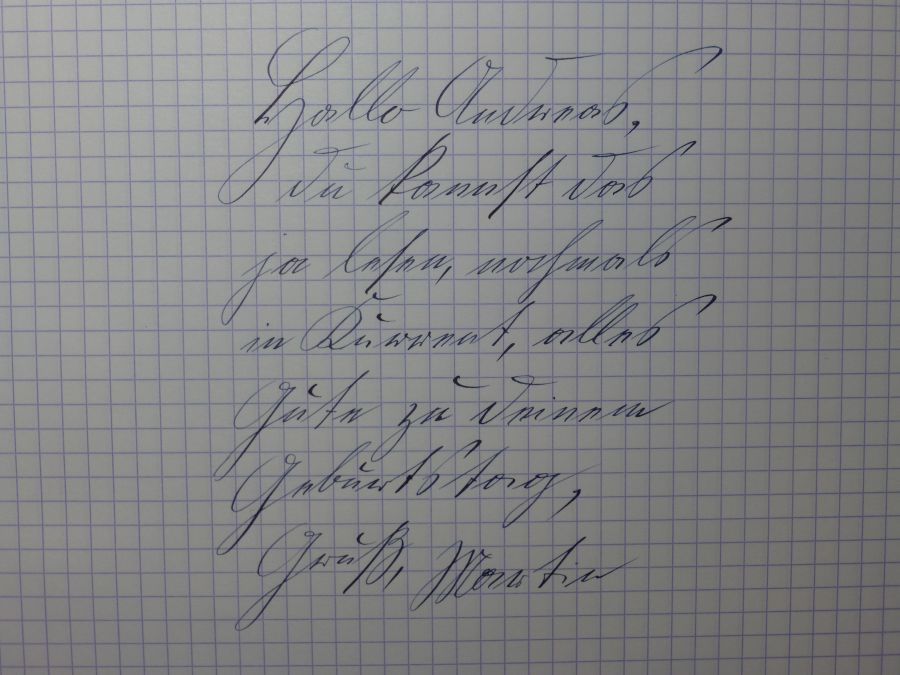 Hallo Andreas,
du kannst das
ja lesen, nochmals
in Kurrent, alles
Gute zu deinem
Geburtstag,
Gruß, Martin